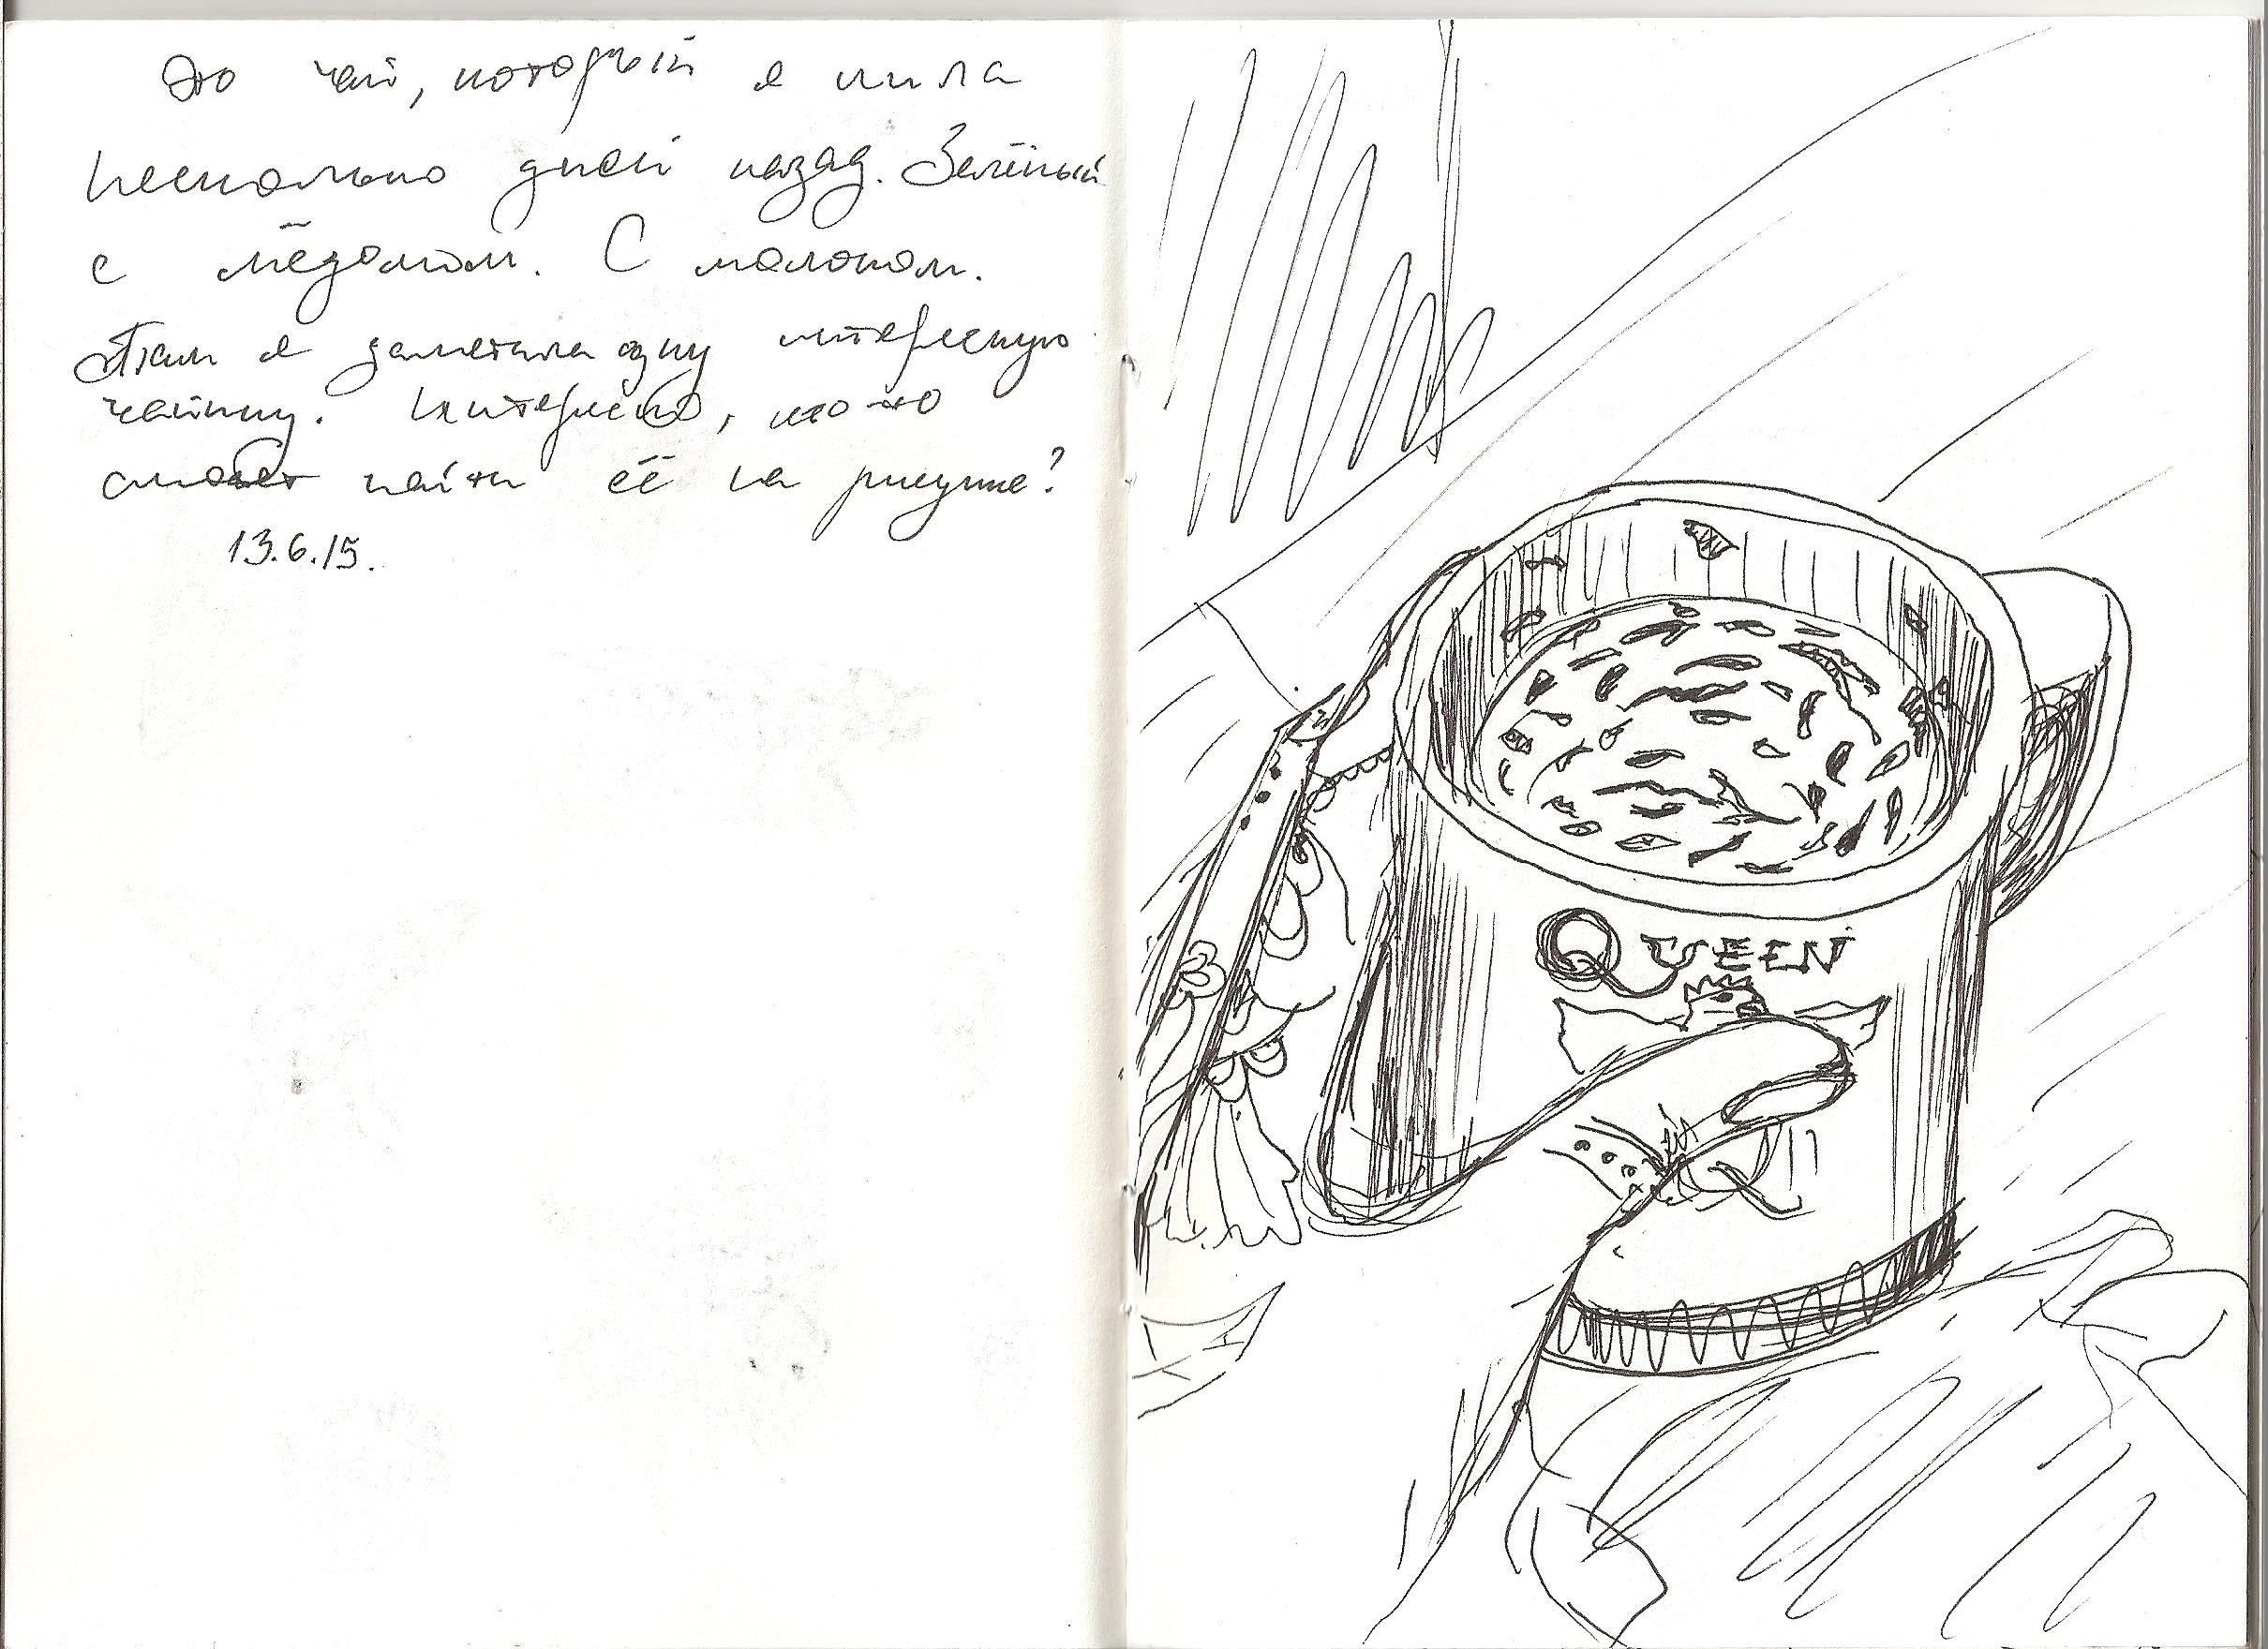 Это чай, который я пила
несколько дней назад. Зелёный
с мёдом. С молоком.
Там я заметила одну интересную
чаинку. Интересно, кто-то
сможет найти её на рисунке?
13.6.15.
QUEEN